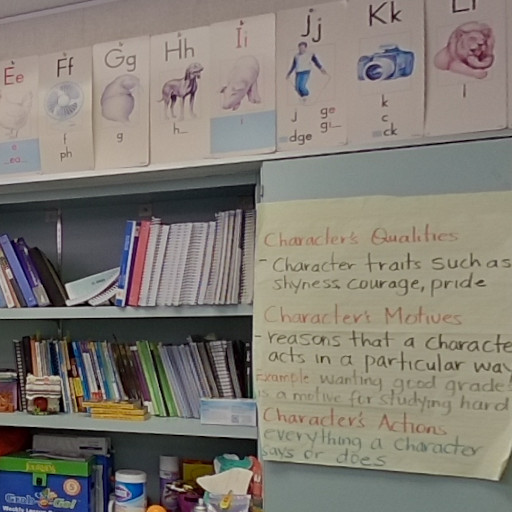 Ee
Ff
Gg
Hh
Ii
Jj
Kk
Ll
e
_ea_
f
ph
g
h_
i
j ge
gi_
dge
k
c
ck
l
Character's Qualities
- Character traits such as
shyness courage, pride
Character's Motives
- reasons that a characte
acts in a particular way
Example wanting good grades
is a motive for studying hard
Character's Actions
everything a character
says or does
Grab Go!